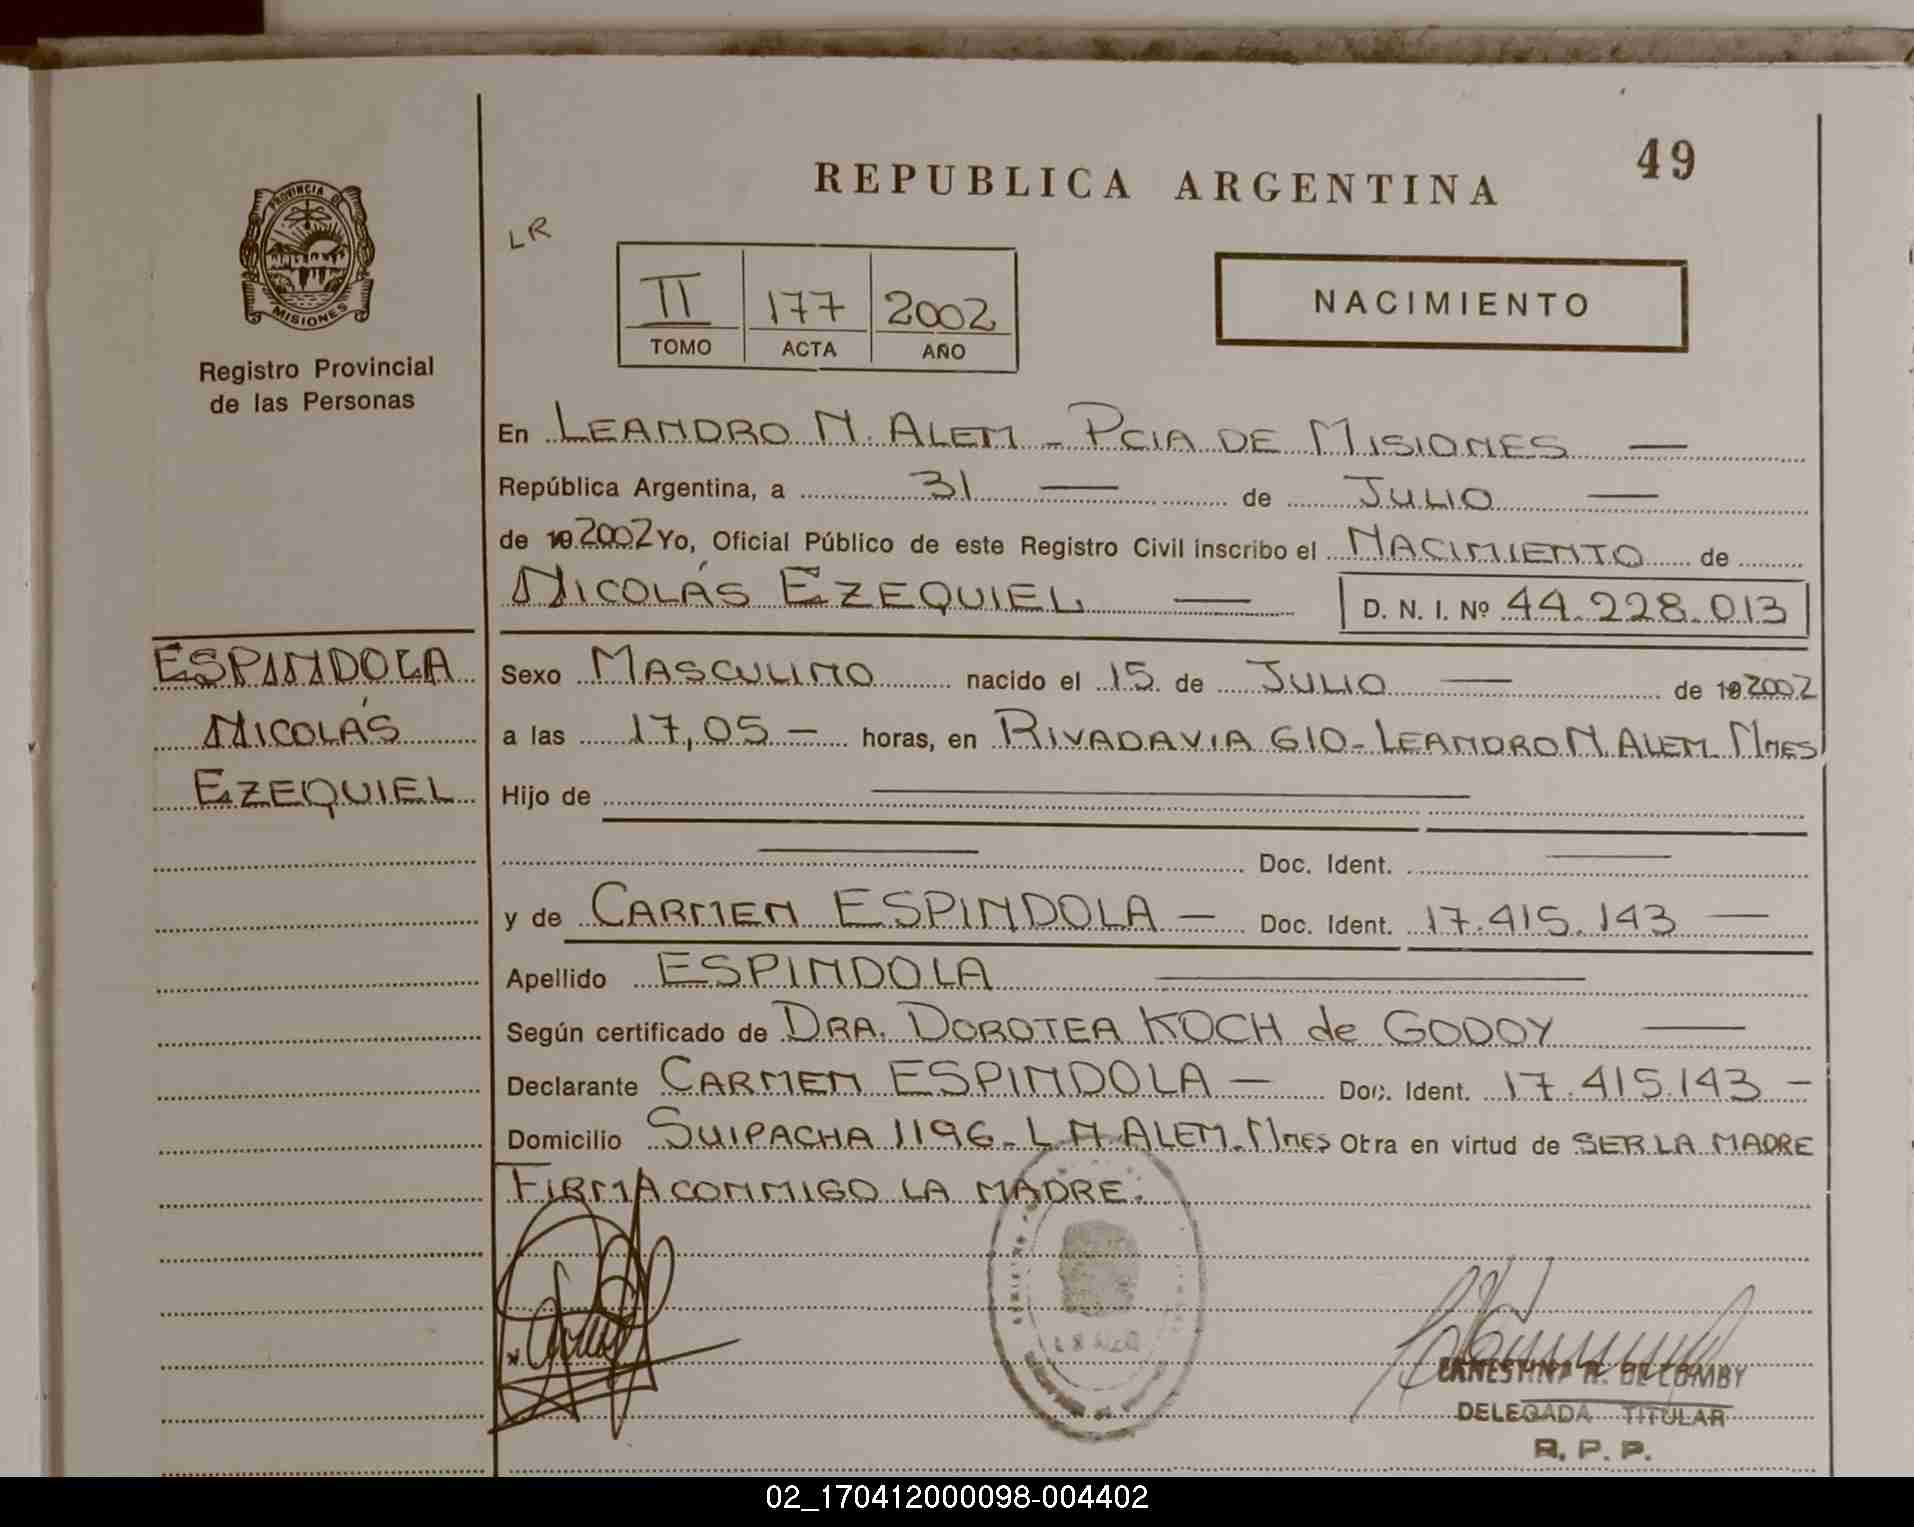 49
REPUBLICA ARGENTINA
PROVINCIA DE
MISIONES
LR
II 177 2002
TOMO ACTA AÑO
NACIMIENTO
Registro Provincial
de las Personas
En LEANDRO N. ALEM - PCIA DE MISIONES —
República Argentina, a 31 — de JULIO —
de 19 2002 Yo, Oficial Público de este Registro Civil inscribo el NACIMIENTO de
NICOLÁS EZEQUIEL — D. N. I. Nº 44.228.013
ESPINDOLA
NICOLÁS
EZEQUIEL
Sexo MASCULINO nacido el 15 de JULIO — de 19 2002
a las 17,05 — horas, en RIVADAVIA 610 - LEANDRO N. ALEM Mnes
Hijo de —
— Doc. Ident. —
y de CARMEN ESPINDOLA — Doc. Ident. 17.415.143 —
Apellido ESPINDOLA —
Según certificado de DRA. DOROTEA KOCH de GODOY —
Declarante CARMEN ESPINDOLA — Doc. Ident. 17.415.143 —
Domicilio SUIPACHA 1196 - L N. ALEM. Mnes Obra en virtud de SER LA MADRE
FIRMA CONMIGO LA MADRE.
ERNESTINA R. DE COMBY
DELEGADA TITULAR
R. P. P.
02_170412000098-004402